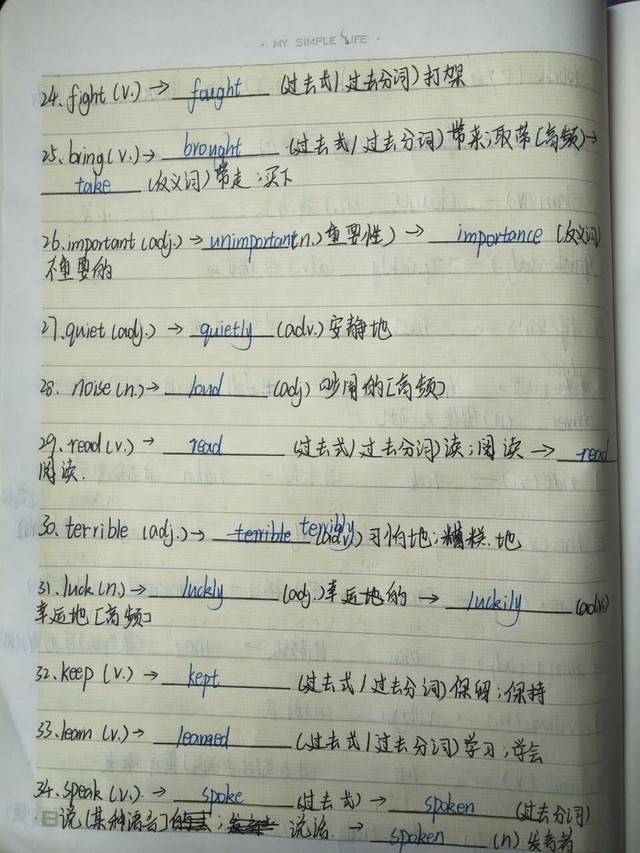 MY SIMPLE LIFE
24. fight (v.) → fought (过去式/过去分词) 打架
25. bring (v.) → brought (过去式/过去分词) 带来;取带[高频] →
take (反义词) 带走;买下
26. important (adj.) → unimportant (n.) 重要性) → importance (反义词)
不重要的
27. quiet (adj.) → quietly (adv.) 安静地
28. noise (n.) → loud (adj) 吵闹的[高频]
29. read (v.) → read (过去式/过去分词) 读;阅读 → read
阅读.
30. terrible (adj.) → terrible terribly (adv.) 可怕地;糟糕地
31. luck (n.) → luckly (adj.) 幸运地的 → luckily (adv.)
幸运地[高频]
32. keep (v.) → kept (过去式/过去分词) 保留;保持
33. learn (v.) → learned (过去式/过去分词) 学习;学会
34. speak (v.) → spoke (过去式) → spoken (过去分词)
说[某种语言]; 说话. → spoken (n) 发言者